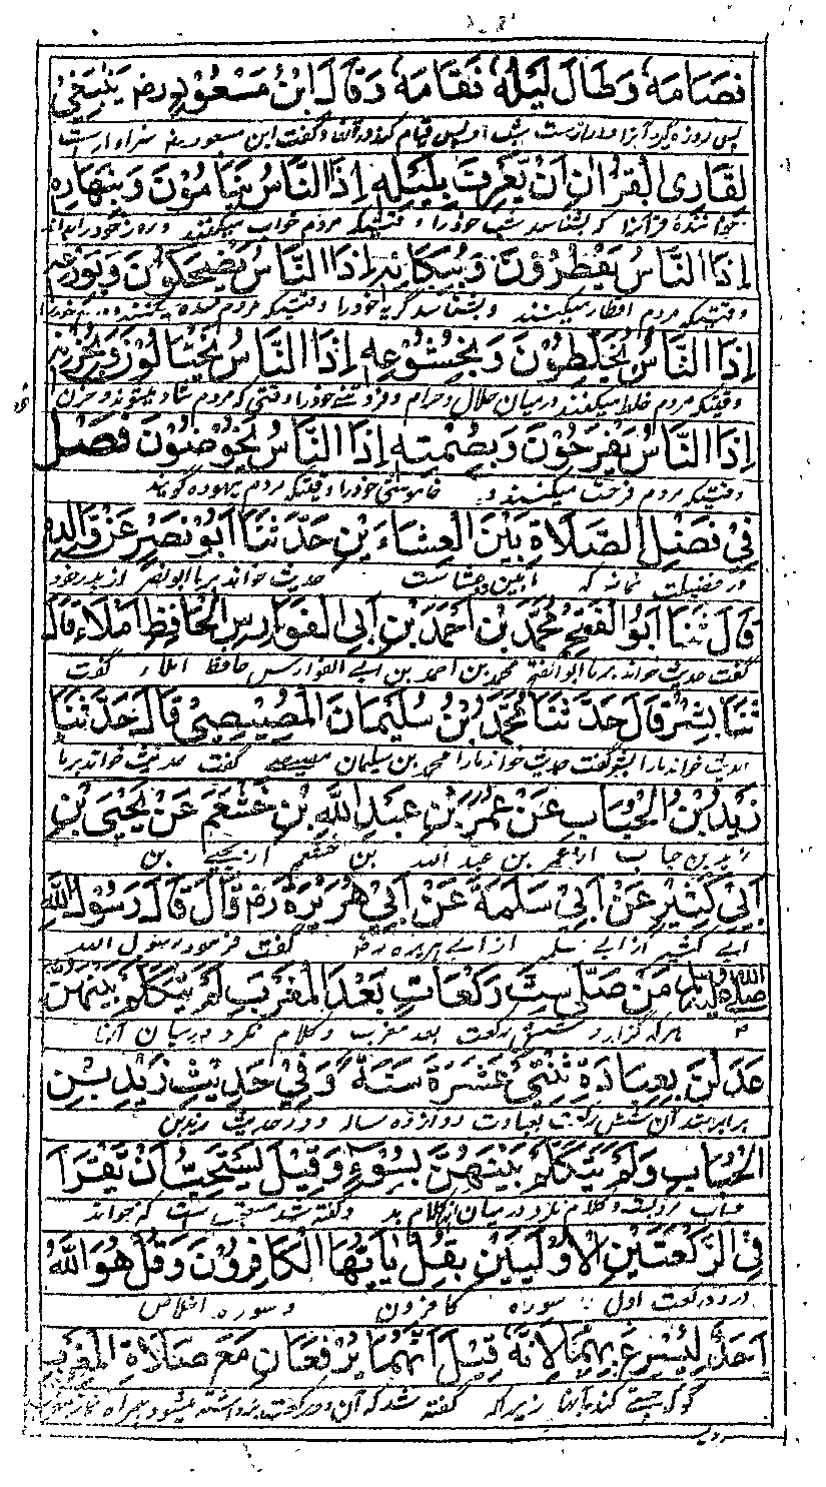 فصامه وطال ليله فقامه وقال ابن مسعود رض ينبغي
پس روزه گیرد آنرا و دراز ست شب او پس قیام کند در آن و گفت ابن مسعود رض سزاوار است
لقارى القران ان يعرف بليله اذا الناس ينامون وبنهاره
خواننده قرآنرا که بشناسد شب خود را وقتیکه مردم خواب میکنند و روز خود را
اذا الناس يفطرون وببكائه اذا الناس يضحكون وبورعه
وقتیکه مردم افطار میکنند و بشناسد گریه خود را وقتیکه مردم خنده میکنند
اذا الناس يخلطون وبخشوعه اذا الناس يختالون وبحزنه
وقتیکه مردم خلط میکنند درمیان حلال و حرام و فروتنی خود را وقتی که مردم
اذا الناس يفرحون وبصمته اذا الناس يخوضون فصل
وقتیکه مردم فرحت میکنند و خاموشی خود را وقتیکه مردم بیهوده گویند
في فضل الصلاة بين العشاءين حدثنا ابو نصر عن والده
در فضیلت نماز که مابین دو عشا ست حدیث خواند بر ما ابو نصر از پدر خود
قال ثنا ابو الفتح محمد بن احمد بن ابي الفوارس الحافظ املاء قال
گفت حدیث خواند بر ما ابو الفتح محمد بن احمد بن ابی الفوارس حافظ املاء گفت
ثنا بشر قال حدثنا محمد بن سليمان المصيصي قال حدثنا
حدیث خواند مارا بشر گفت حدیث خواند مارا محمد بن سلیمان مصیصی گفت حدیث خواند بر ما
زيد بن الحباب عن عمر بن عبد الله بن خثعم عن يحيى بن
زید بن حباب از عمر بن عبد الله بن خثعم از یحیی بن
ابي كثير عن ابي سلمة عن ابي هريرة رض قال قال رسول الله
ابی کثیر از ابی سلمه از ابی هریره رض گفت فرمود رسول الله
صلى الله عليه وسلم من صلى ست ركعات بعد المغرب لم يتكلم بينهن
م هر که گزارد شش رکعت بعد مغرب و کلام نکرد درمیان آنها
عدلن بعبادة ثنتي عشرة سنة وفي حديث زيد بن
برابر شد آن شش رکعت بعبادت دوازده ساله و در حدیث زید بن
الحباب ولم يتكلم بينهن بسوء وقيل يستحب ان يقرا
حباب و کلام نکرد درمیان کلام بد و گفته شد مستحب است که خواند
في الركعتين الاوليين بقل يايها الكافرون وقل هو الله
در دو رکعت اول سوره کافرون و سوره اخلاص
احد ليسرع بهما لانه قيل انهما يرفعان مع صلاة المغرب
زیراکه گفته شد که آن دو رکعت برداشته میشود همراه نماز